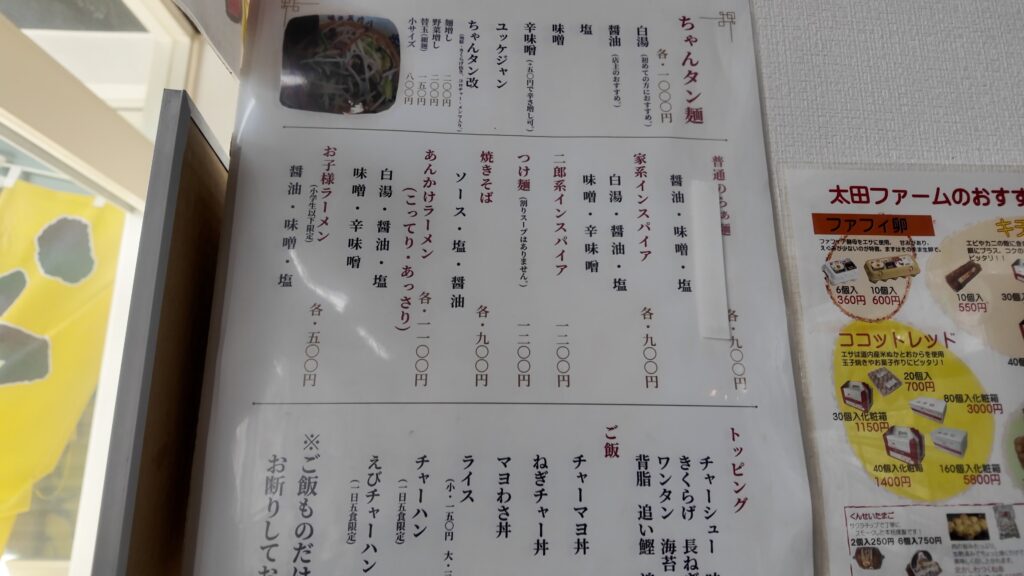 ちゃんタン麺
各・一〇〇〇円
白湯(初めての方におすすめ。)
醤油(店主のおすすめ。)
塩
味噌
辛味噌(+五〇円で辛さ増し可。)
ユッケジャン
ちゃんタン改
麺増し 二〇〇円
野菜増し 二〇〇円
替玉(細麺) 一五〇円
小サイズ 八〇〇円
普通のらぁ麺
各・九〇〇円
醤油・味噌・塩
家系インスパイア
各・九〇〇円
白湯・醤油・塩
味噌・辛味噌
二郎系インスパイア
一二〇〇円
つけ麺(割りスープはありません。)
一二〇〇円
焼きそば
各・九〇〇円
ソース・塩・醤油
あんかけラーメン
(こってり・あっさり)
各・一一〇〇円
白湯・醤油・塩
味噌・辛味噌
お子様ラーメン
(小学生以下限定)
各・五〇〇円
醤油・味噌・塩
トッピング
チャーシュー
きくらげ 長ね
ワンタン 海苔
背脂 追い鰹
ご飯
チャーマヨ丼
ねぎチャー丼
マヨわさ丼
ライス
(小・一五〇円 大・
チャーハン
(一日五食限定)
えびチャーハン
(一日五食限定)
※ご飯ものだけは
お断りしてお
太田ファームのおすす
ファフィ卵
ファフィア酵母をエサに使用。甘みがあり、
えぐみが少ないのが特徴。まずはそのまま生卵で。
6個入
360円
10個入
600円
キ
ピッタリ!!
10個入
550円
30個
ココットレッド
エサは道内産米ぬかとおからを使用
玉子焼きやお菓子作りにピッタリ!
20個入
700円
30個入化粧箱
1150円
80個入化粧箱
3000円
40個入化粧箱
1400円
160個入化粧箱
5800円
くんせいたまご
サクラチップで丁寧に
スモークした本格燻製です!
2個入250円 6個入750円